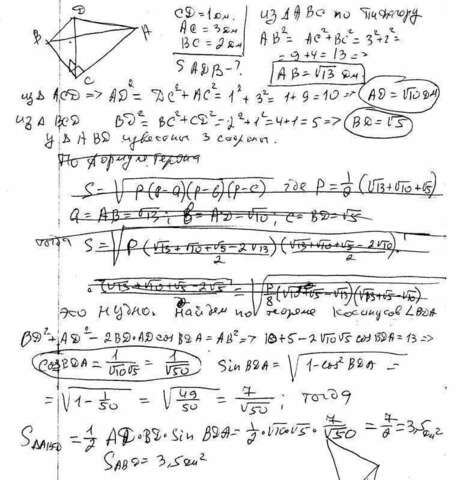 D
B
A
C
CD = 1 дм.
AC = 3 дм
BC = 2 дм
S ADB - ?
из Δ ABC по Пифагору
AB² = AC² + BC² = 3² + 2² =
= 9 + 4 = 13 =>
AB = √13 дм
из Δ ACD => AD² = DC² + AC² = 1² + 3² = 1 + 9 = 10 => AD = √10 дм
из Δ BCD BD² = BC² + CD² = 2² + 1² = 4 + 1 = 5 => BD = √5
У Δ ABD известны 3 стороны.
По формуле Герона
S = √P(P-a)(P-b)(P-c) где P = 1/2 (√13 + √10 + √5)
a = AB = √13; b = AD = √10; c = BD = √5
тогда S = √P (√13 + √10 + √5 - 2√13)/2 (√13 + √10 + √5 - 2√10)/2
· (√13 + √10 + √5 - 2√5)/2 = √P/8 (√10 + √5 - √13)(√13 + √5 - √10)
это нудно. Найдем по теореме Косинусов ∠BDA
BD² + AD² - 2BD·AD cos BDA = AB² => 10 + 5 - 2√10√5 cos BDA = 13 =>
cos BDA = 1/√10√5 = 1/√50 sin BDA = √1 - cos² BDA =
= √1 - 1/50 = √49/50 = 7/√50 ; тогда
S ΔABD = 1/2 AD · BD · sin BDA = 1/2 · √10√5 · 7/√50 = 7/2 = 3,5 дм²
S ABD = 3,5 дм²